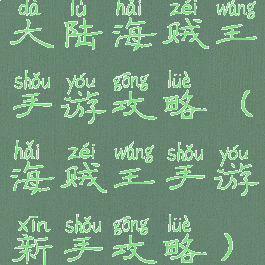 dà lù hǎi zéi wáng
大陆海贼王
shǒu yóu gōng lüè
手游攻略（
hǎi zéi wáng shǒu yóu
海贼王手游
xīn shǒu gōng lüè
新手攻略）